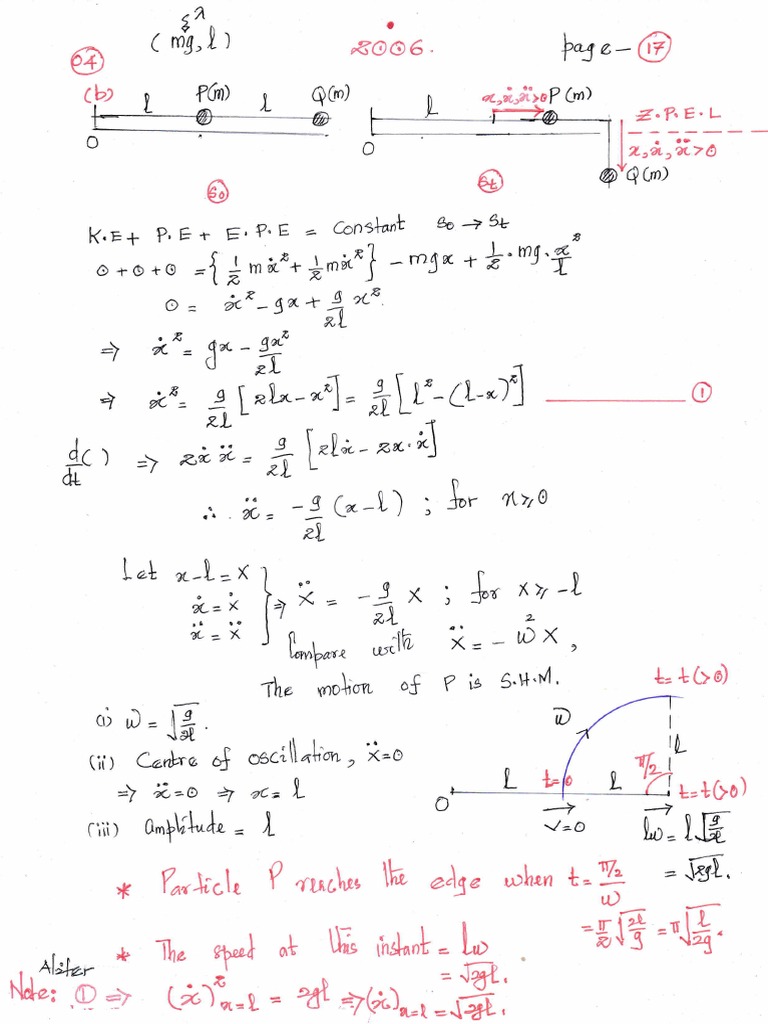 λ
(mg, l)
2006.
page - 17
04
(b)
l P(m) l Q(m)
O
l x, ẋ, ẍ>0 P(m)
O
Z.P.E.L
x, ẋ, ẍ>0
Q(m)
S₀
Sₜ
K.E + P.E + E.P.E = Constant S₀ → Sₜ
0+0+0 = {1/2 mẋ² + 1/2 mẋ²} - mgx + 1/2 · mg · x²/l
0 = ẋ² - gx + g/2l x².
⇒ ẋ² = gx - gx²/2l
⇒ ẋ² = g/2l [2lx - x²] = g/2l [l² - (l-x)²] ——— 1
d/dt ( ) ⇒ 2ẋ ẍ = g/2l [2lẋ - 2x·ẋ]
∴ ẍ = -g/2l (x-l) ; for x≥0
Let x-l = X
ẋ = Ẋ
ẍ = Ẍ
} ⇒ Ẍ = -g/2l X ; for X≥-l
Compare with Ẍ = -ω²X,
The motion of P is S.H.M.
(i) ω = √g/2l.
(ii) Centre of oscillation, Ẍ=0
⇒ ẍ=0 ⇒ x = l
(iii) amplitude = l
t = t(>0)
ω
l
π/2
O l t=0 l t=t(>0)
v=0
lω = l√g/2l
= √2gl.
* Particle P reaches the edge when t = π/2 / ω
= π/2 √2l/g = π√l/2g.
* The speed at this instant = lω
= √2gl.
Aliter
Note: 1 ⇒ (ẋ)²ₓ₌ₗ = 2gl ⇒ (ẋ)ₓ₌ₗ = √2gl.